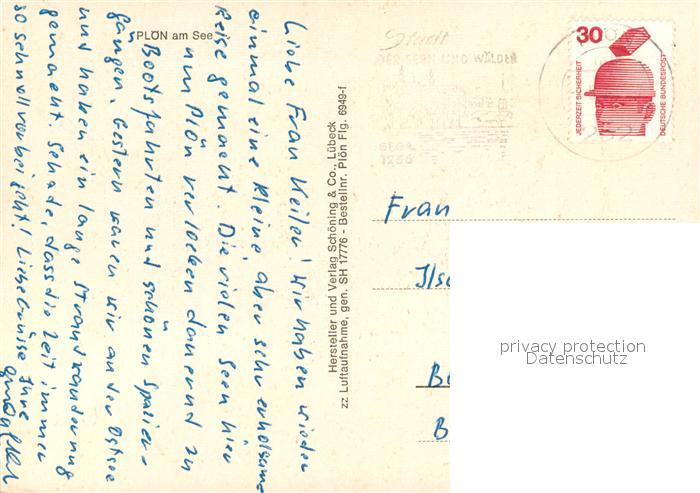 PLÖN am See
Liebe Frau Keiler! Wir haben wieder
einmal eine kleine, aber sehr erholsame
Reise gemacht. Die vielen Seen hier
um Plön verlocken dauernd zu
Bootsfahrten und schönen Spazier-
gängen. Gestern waren wir an der Ostsee
und haben ein lange Strandwanderung
gemacht. Schade, dass die Zeit immer
so schnell vorbei geht! Liebe Grüsse Ihre
Hersteller und Verlag Schöning & Co., Lübeck
zz Luftaufnahme, gen. SH 17776 - Bestellnr. Plön Flg. 6949-f
Stadt
DER SEEN UND WÄLDER
GEGR.
1236
30
JEDERZEIT SICHERHEIT
DEUTSCHE BUNDESPOST
Frau
Ilse
privacy protection
Datenschutz
Be
B